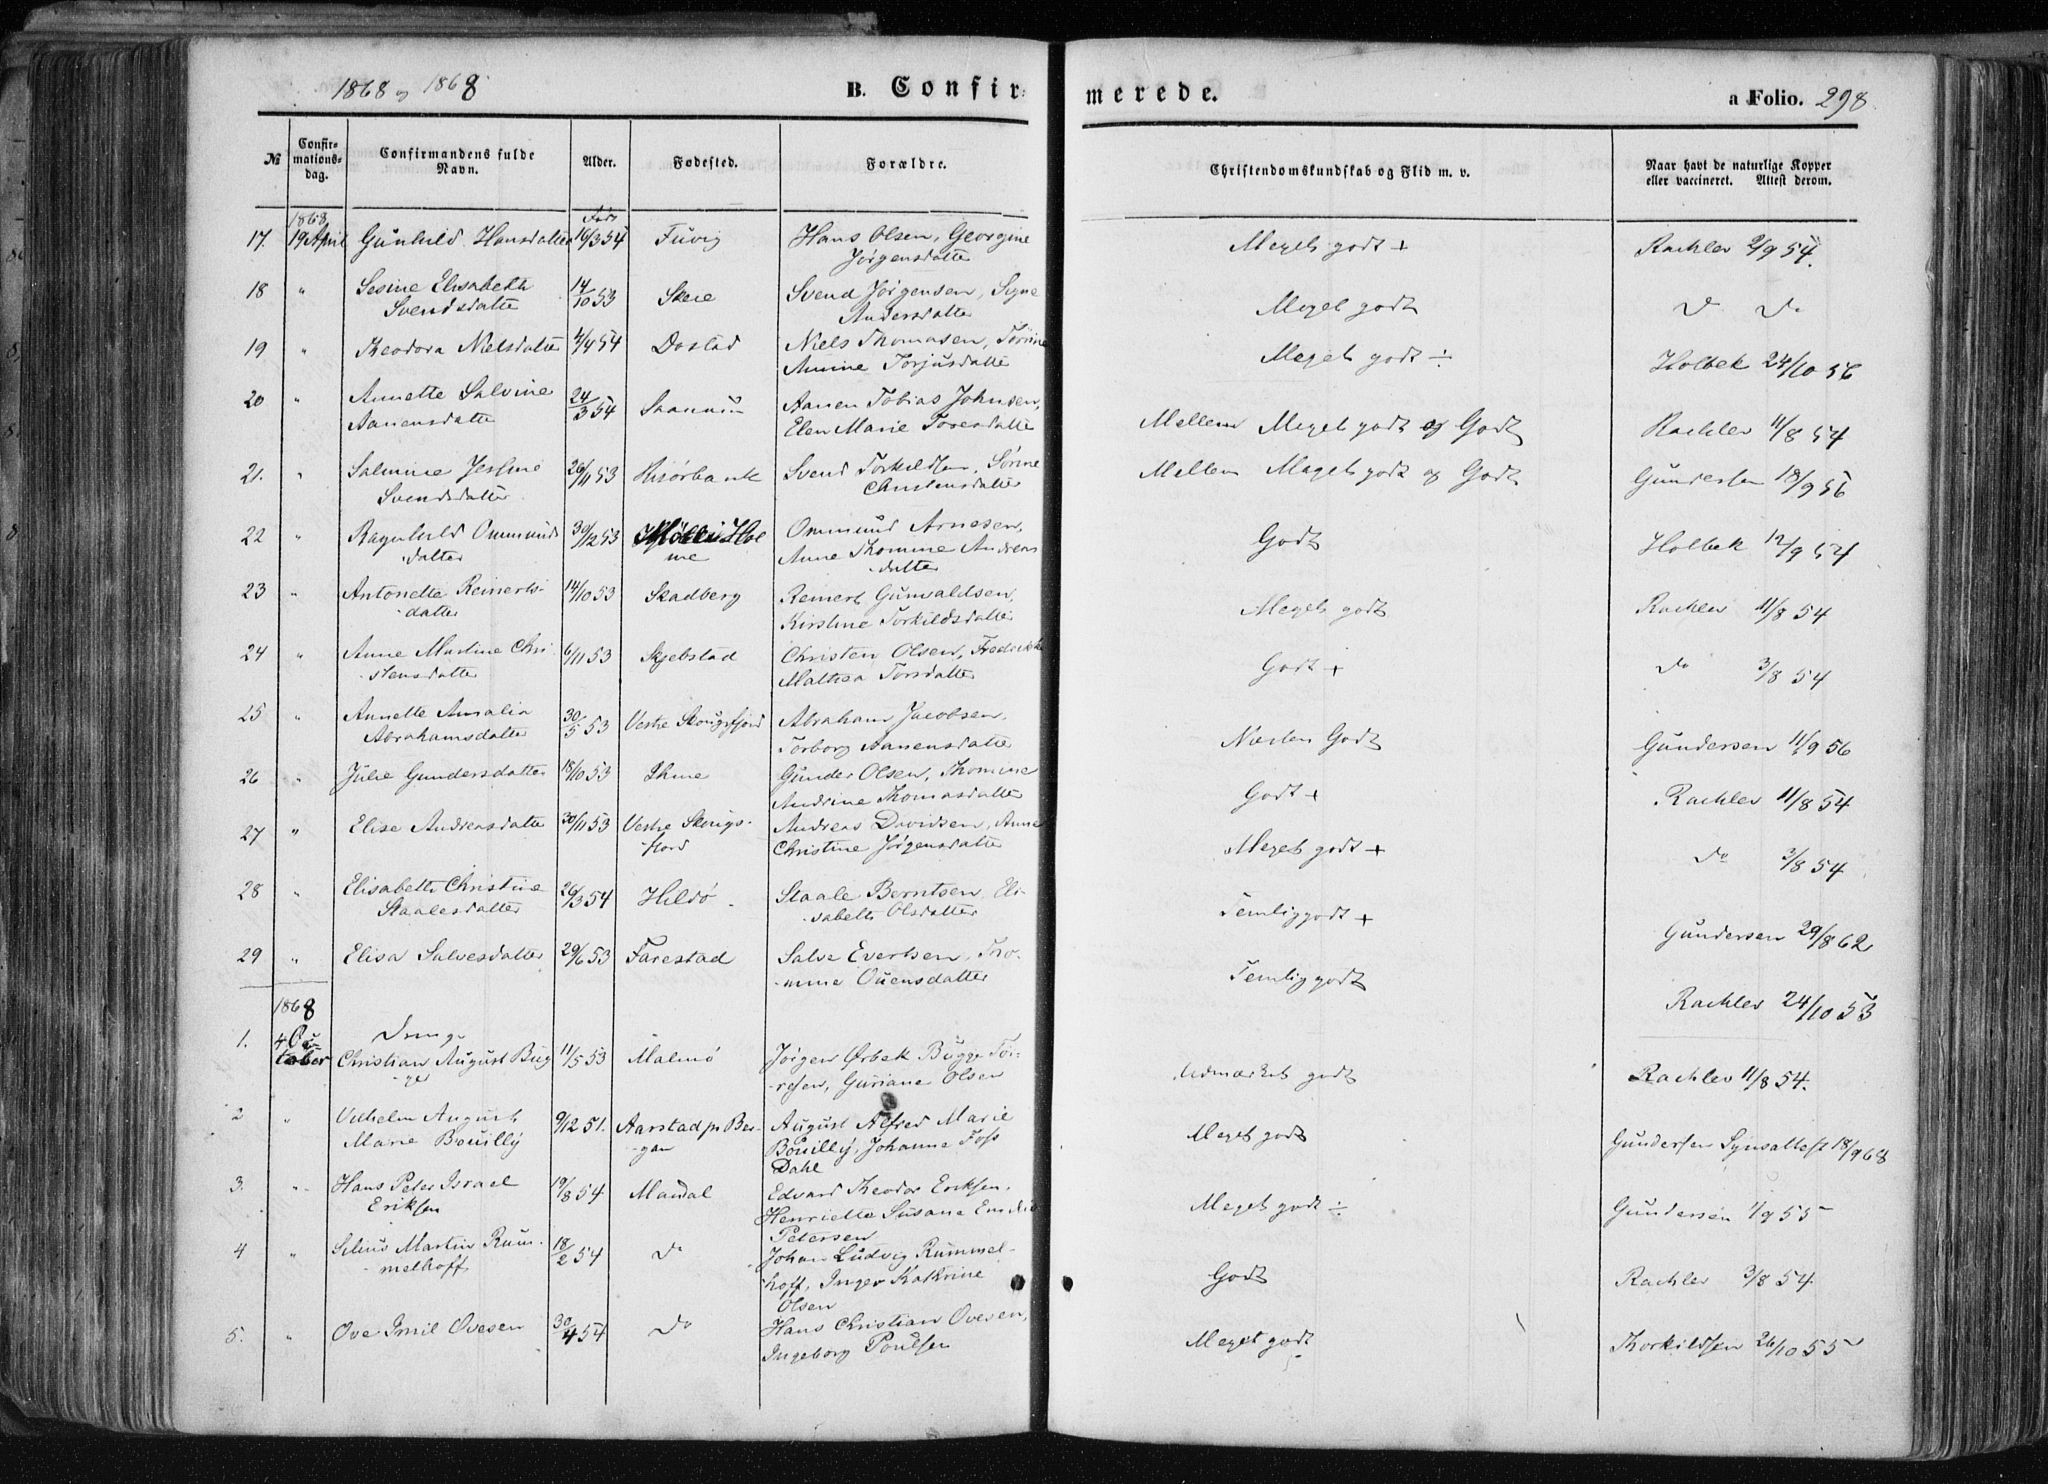 1868 og 1868
B. Confirmerede.
a Folio. 298
№ Confirmationsdag. Confirmandens fulde Navn. Alder. Fødested. Forældre. Christendomskundskab og Flid m. v. Naar havt de naturlige Kopper eller vaccineret. Attest derom.
1868 Født
17. 19 April Gunhild Hansdatter 16/3 54 Tuvig Hans Olsen, Georgine Meget godt + Rachlev 2/9 54.
Jørgensdatter
18 " Sesine Elisabeth 14/10 53 Skeie Svend Jørgensen, Signe Meget godt Do Do
Svendsdatte Andersdatter
19 " Theodora Nielsdatter 4/4 54 Dostad Niels Thomasen, Tørrine Meget godt ÷ Holbek 24/10 56
Amine Torjusdatte
20 " Annette Salvine 24/3 54 Saanum Aanen Tobias Johnsen, Mellem Meget godt og Godt Rachlev 11/8 54
Aanensdatte Elen Marie Toresdatte
21. " Salmine Jesine 26/11 53 Risørbank Svend Torkildsen, Sørine Mellem Meget godt og Godt Gundersen 18/9 56
Svendsdatter Christensdatter
22 " Ragnhild Ommunds 30/12 53 Ommund Arnesen, Godt Holbek 12/9 54
datter Anne Thomine Andreas
datter
23 " Antonette Reinerts- 14/10 53 Skadberg Reinert Gunvaldsen, Meget godt Rachlev 11/8 54
datter Kirstine Torkildsdatter
24 " Anne Martine Chri 6/11 53 Skjebstad Christen Olsen, Fredrikke Godt + Do 3/8 54
stensdatter Mathea Torsdatter
25 " Annette Amalia 30/5 53 Vestre Skougsfjord Abraham Jacobsen, Næsten Godt Gundersen 11/9 56
Abrahamsdatter Torborg Aanensdatte
26 " Julie Gundersdatter 18/10 53 Ihme Gunder Olsen, Thomine Godt + Rachlev 11/8 54
Andrine Thomasdatter
27 " Elise Andreasdatte 30/11 53 Vestre Skougs- Andreas Davidsen, Anne Meget godt + Do 3/8 54
fiord Christine Jørgensdatte
28 " Elisabeth Christine 26/3 54 Hildø Staale Berntsen, Eli- Temlig godt + Gundersen 29/8 62
Staalesdatter sabeth Olsdatter
29 " Elisa Salvesdatter 29/6 53 Farestad Salve Evertsen, Tho- Temlig godt Rachlev 24/10 53
mine Ouensdatter
1868
1. 4 Oc- Drenge
tober Christian August Bug 11/5 53 Malmø Jørgen Ørbek Bugge Tør- Udmærket godt Rachlev 11/8 54.
ge resen, Guriane Olsen
2 " Vilhelm August 9/12 51. Aarstad pr Ber- August Alfred Marie Meget godt Gundersen Synsattest 18/9 68
Marie Bouilly gen Bouilly, Johanne Foss
Dahl
3. " Hans Peter Israel 19/8 54 Mandal Edvard Theodor Eriksen, Meget godt ÷ Gundersen 1/9 55
Eriksen Henriette Susane Emilie
Petersen
4 " Silius Martin Rum- 18/2 54 Do Johan Ludvig Rummel- Godt Rachlev 3/8 54.
melhoff hoff, Inger Katrine
Olsen
5. " Ove Imil Ovesen 30/4 54 Do Hans Christian Ovesen, Meget godt Thorkildsen 26/10 55
Ingeborg Poulsen